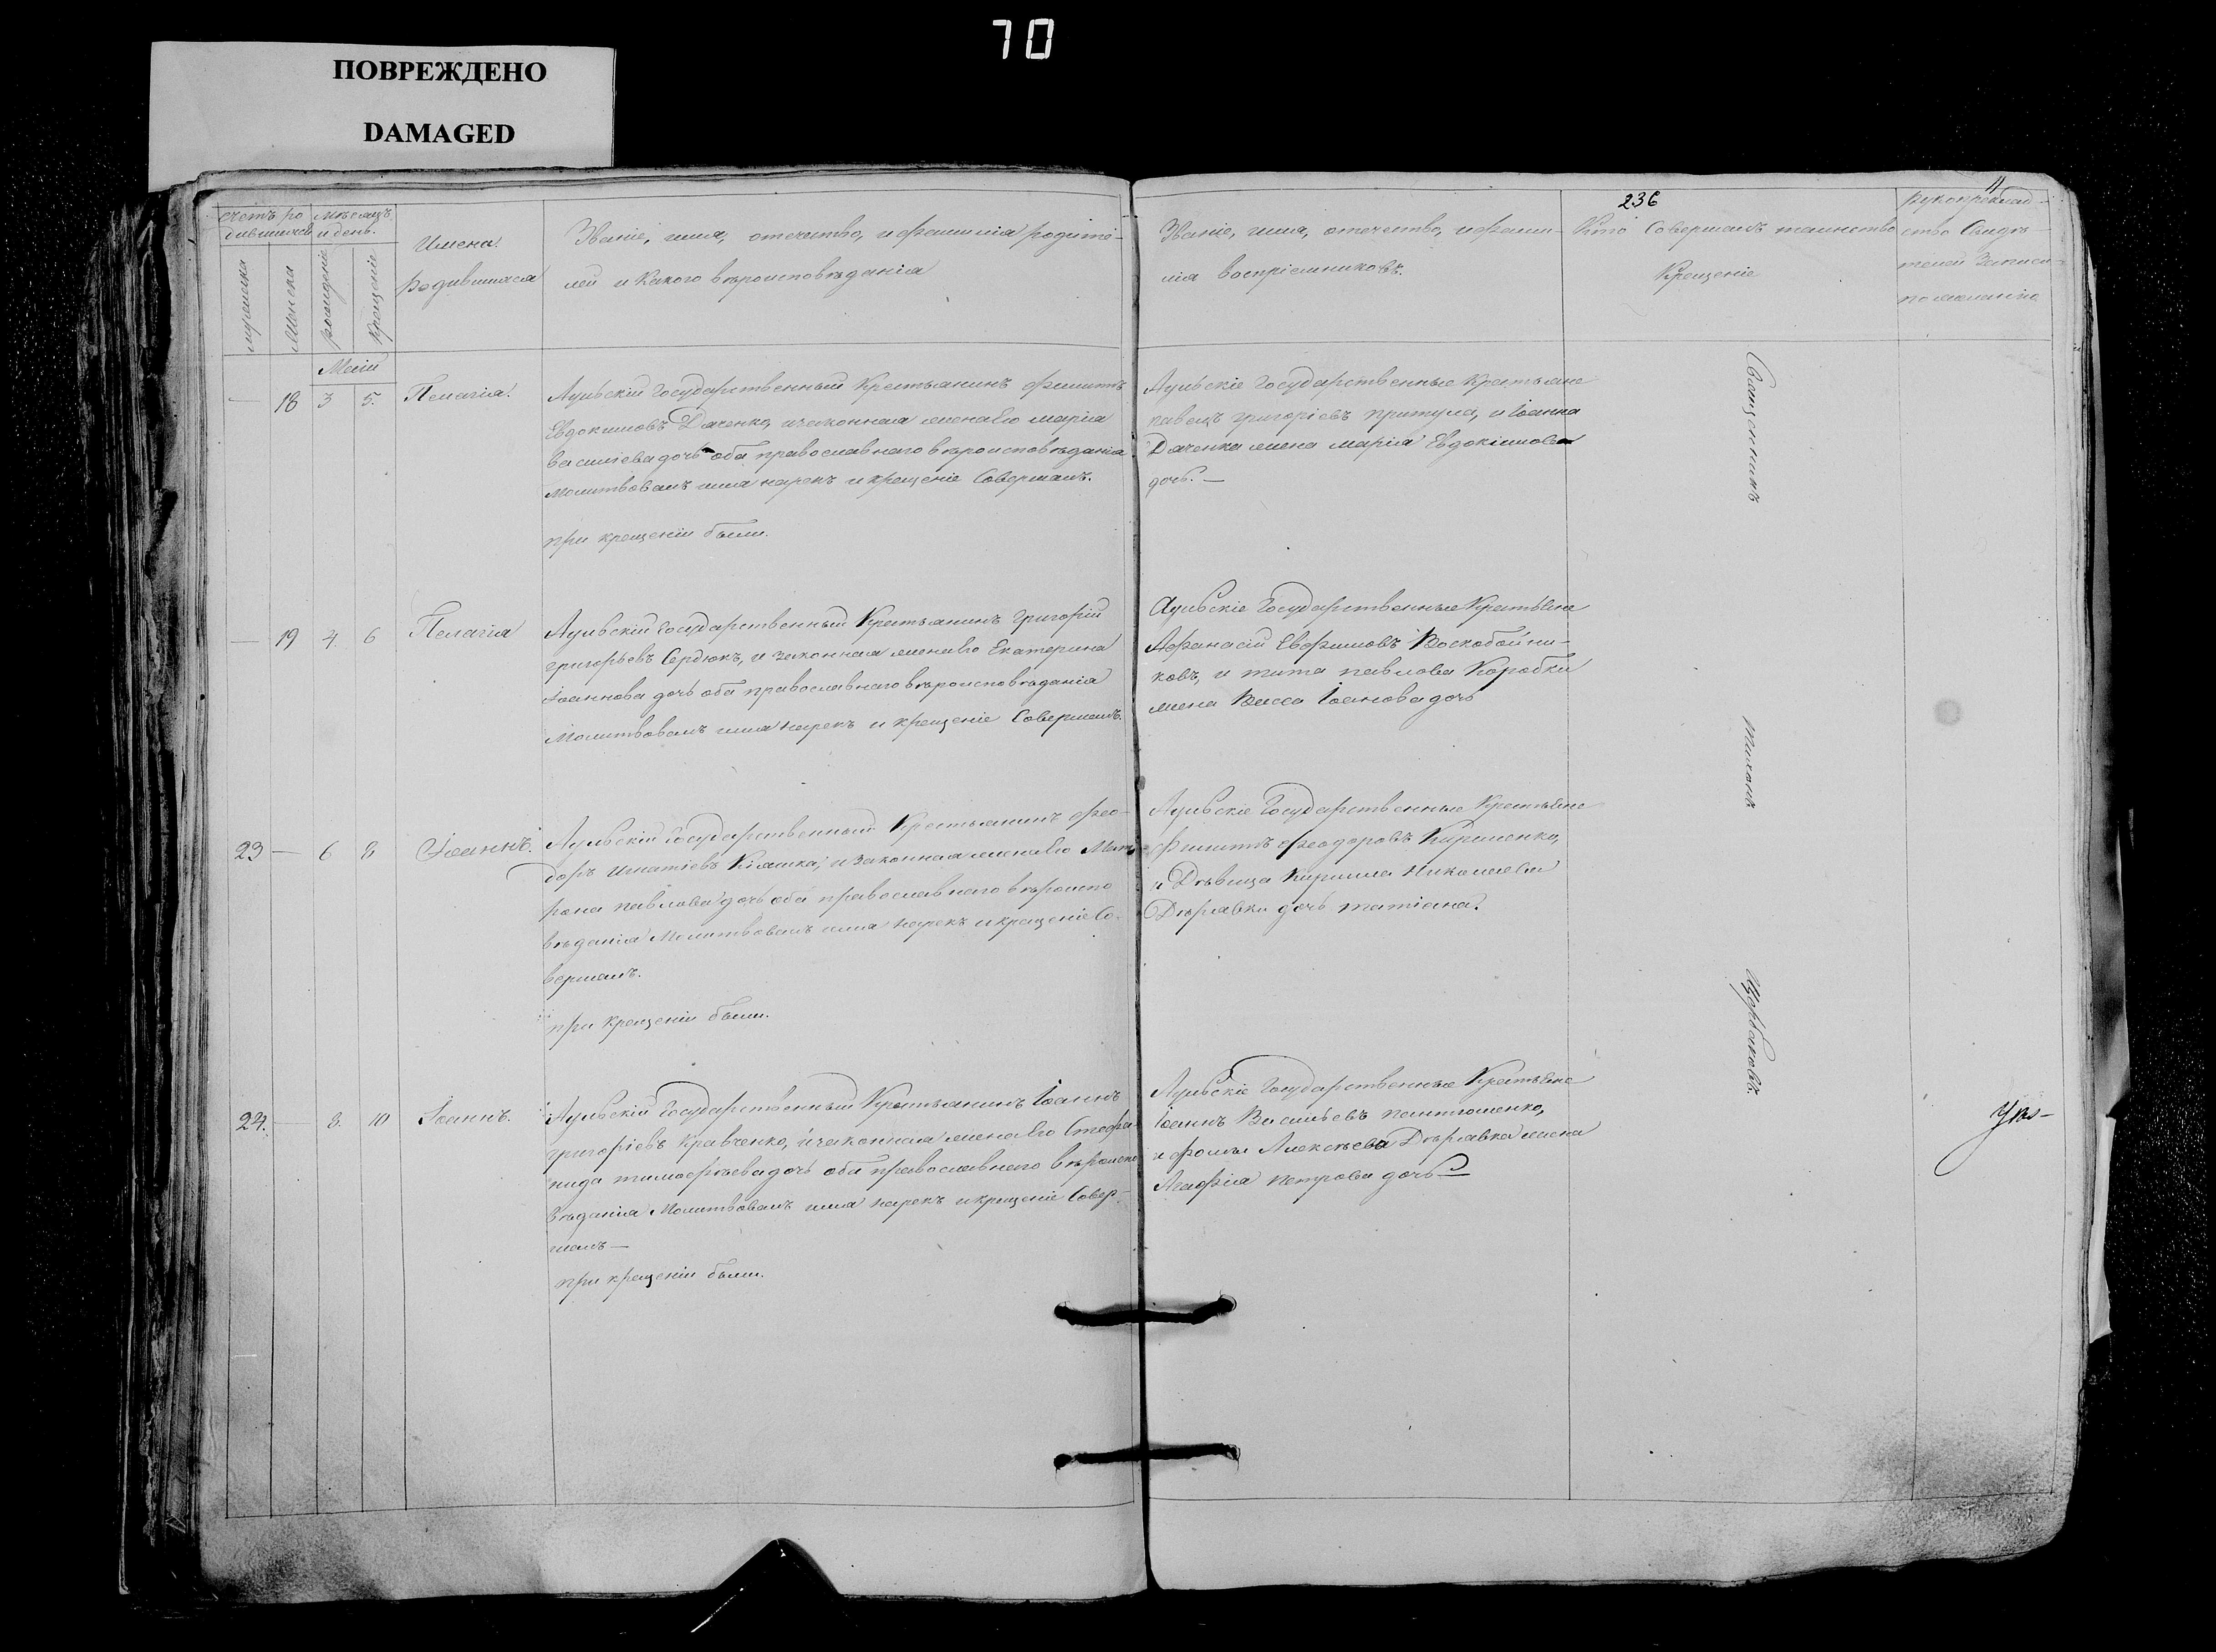 70
ПОВРЕЖДЕНО
DAMAGED
236
11
Счетъ ро
дившихся
мѣсяцъ
и день.
мужеска
Женска
рожденіе
крещеніе
Имена
родившихся
Званіе, имя, отечество, и фамилія родите-
лей и какого вѣроисповѣданія
Званіе, имя, отечество, и фами-
лія воспріемниковъ.
Кто Совершалъ таинство
Крещеніе
рукоприклад-
ство Свидѣ-
телей записи
по желанію
Маія
— 18 3 5. Пелагія.
Аульскій Государственный Крестьянинъ филиппъ
Евдокимовъ Даченко, и законная жена его марія
васильева дочь оба православнаго вѣроисповѣданія
Молитвовалъ имя нарекъ и крещеніе Совершалъ.
при крещеніи были.
Аульскіе Государственные Крестьяне
павелъ григоріевъ притула, и Іоанна
Даченка жена марія Евдокимова
дочь. —
— 19 4. 6 Пелагія
Аульскій Государственный Крестьянинъ Григорій
григорьевъ Сердюкъ, и законная жена его Екатерина
Іоаннова дочь оба православнаго вѣроисповѣданія
Молитвовалъ имя нарекъ и крещеніе Совершалъ.
Аульскіе Государственные Крестьяне
Афанасій Евфимовъ Воскобойни-
ковъ, и тита павлова Коробки
жена Васса Іоанова дочь
23 — 6 8 Іоаннъ.
Аульскій Государственный Крестьянинъ фео-
доръ игнатіевъ Кіяшка, и законная жена его Мат-
рона павлова дочь оба православнаго вѣроиспо
вѣданія Молитвовалъ имя нарекъ и крещеніе Со-
вершалъ.
при крещеніи были.
Аульскіе Государственные Крестьяне
филиппъ феодоровъ Кириленко,
и Дѣвица Кирилла Николаева
Дѣркавки дочь татіана.
24. — 8. 10 Іоаннъ.
Аульскій Государственный Крестьянинъ Іоаннъ
григоріевъ Кравченко, и законная жена его Стефа-
нида тимофѣева дочь оба православнаго вѣроиспо
вѣданія Молитвовалъ имя нарекъ и крещеніе Совер-
шалъ —
при крещеніи были.
Аульскіе Государственные Крестьяне
Іоаннъ Васильевъ пантюшенко,
и фомы Алексѣева Дѣркавка жена
Агафія петрова дочь —
Священникъ
тихонъ
Щербаковъ.